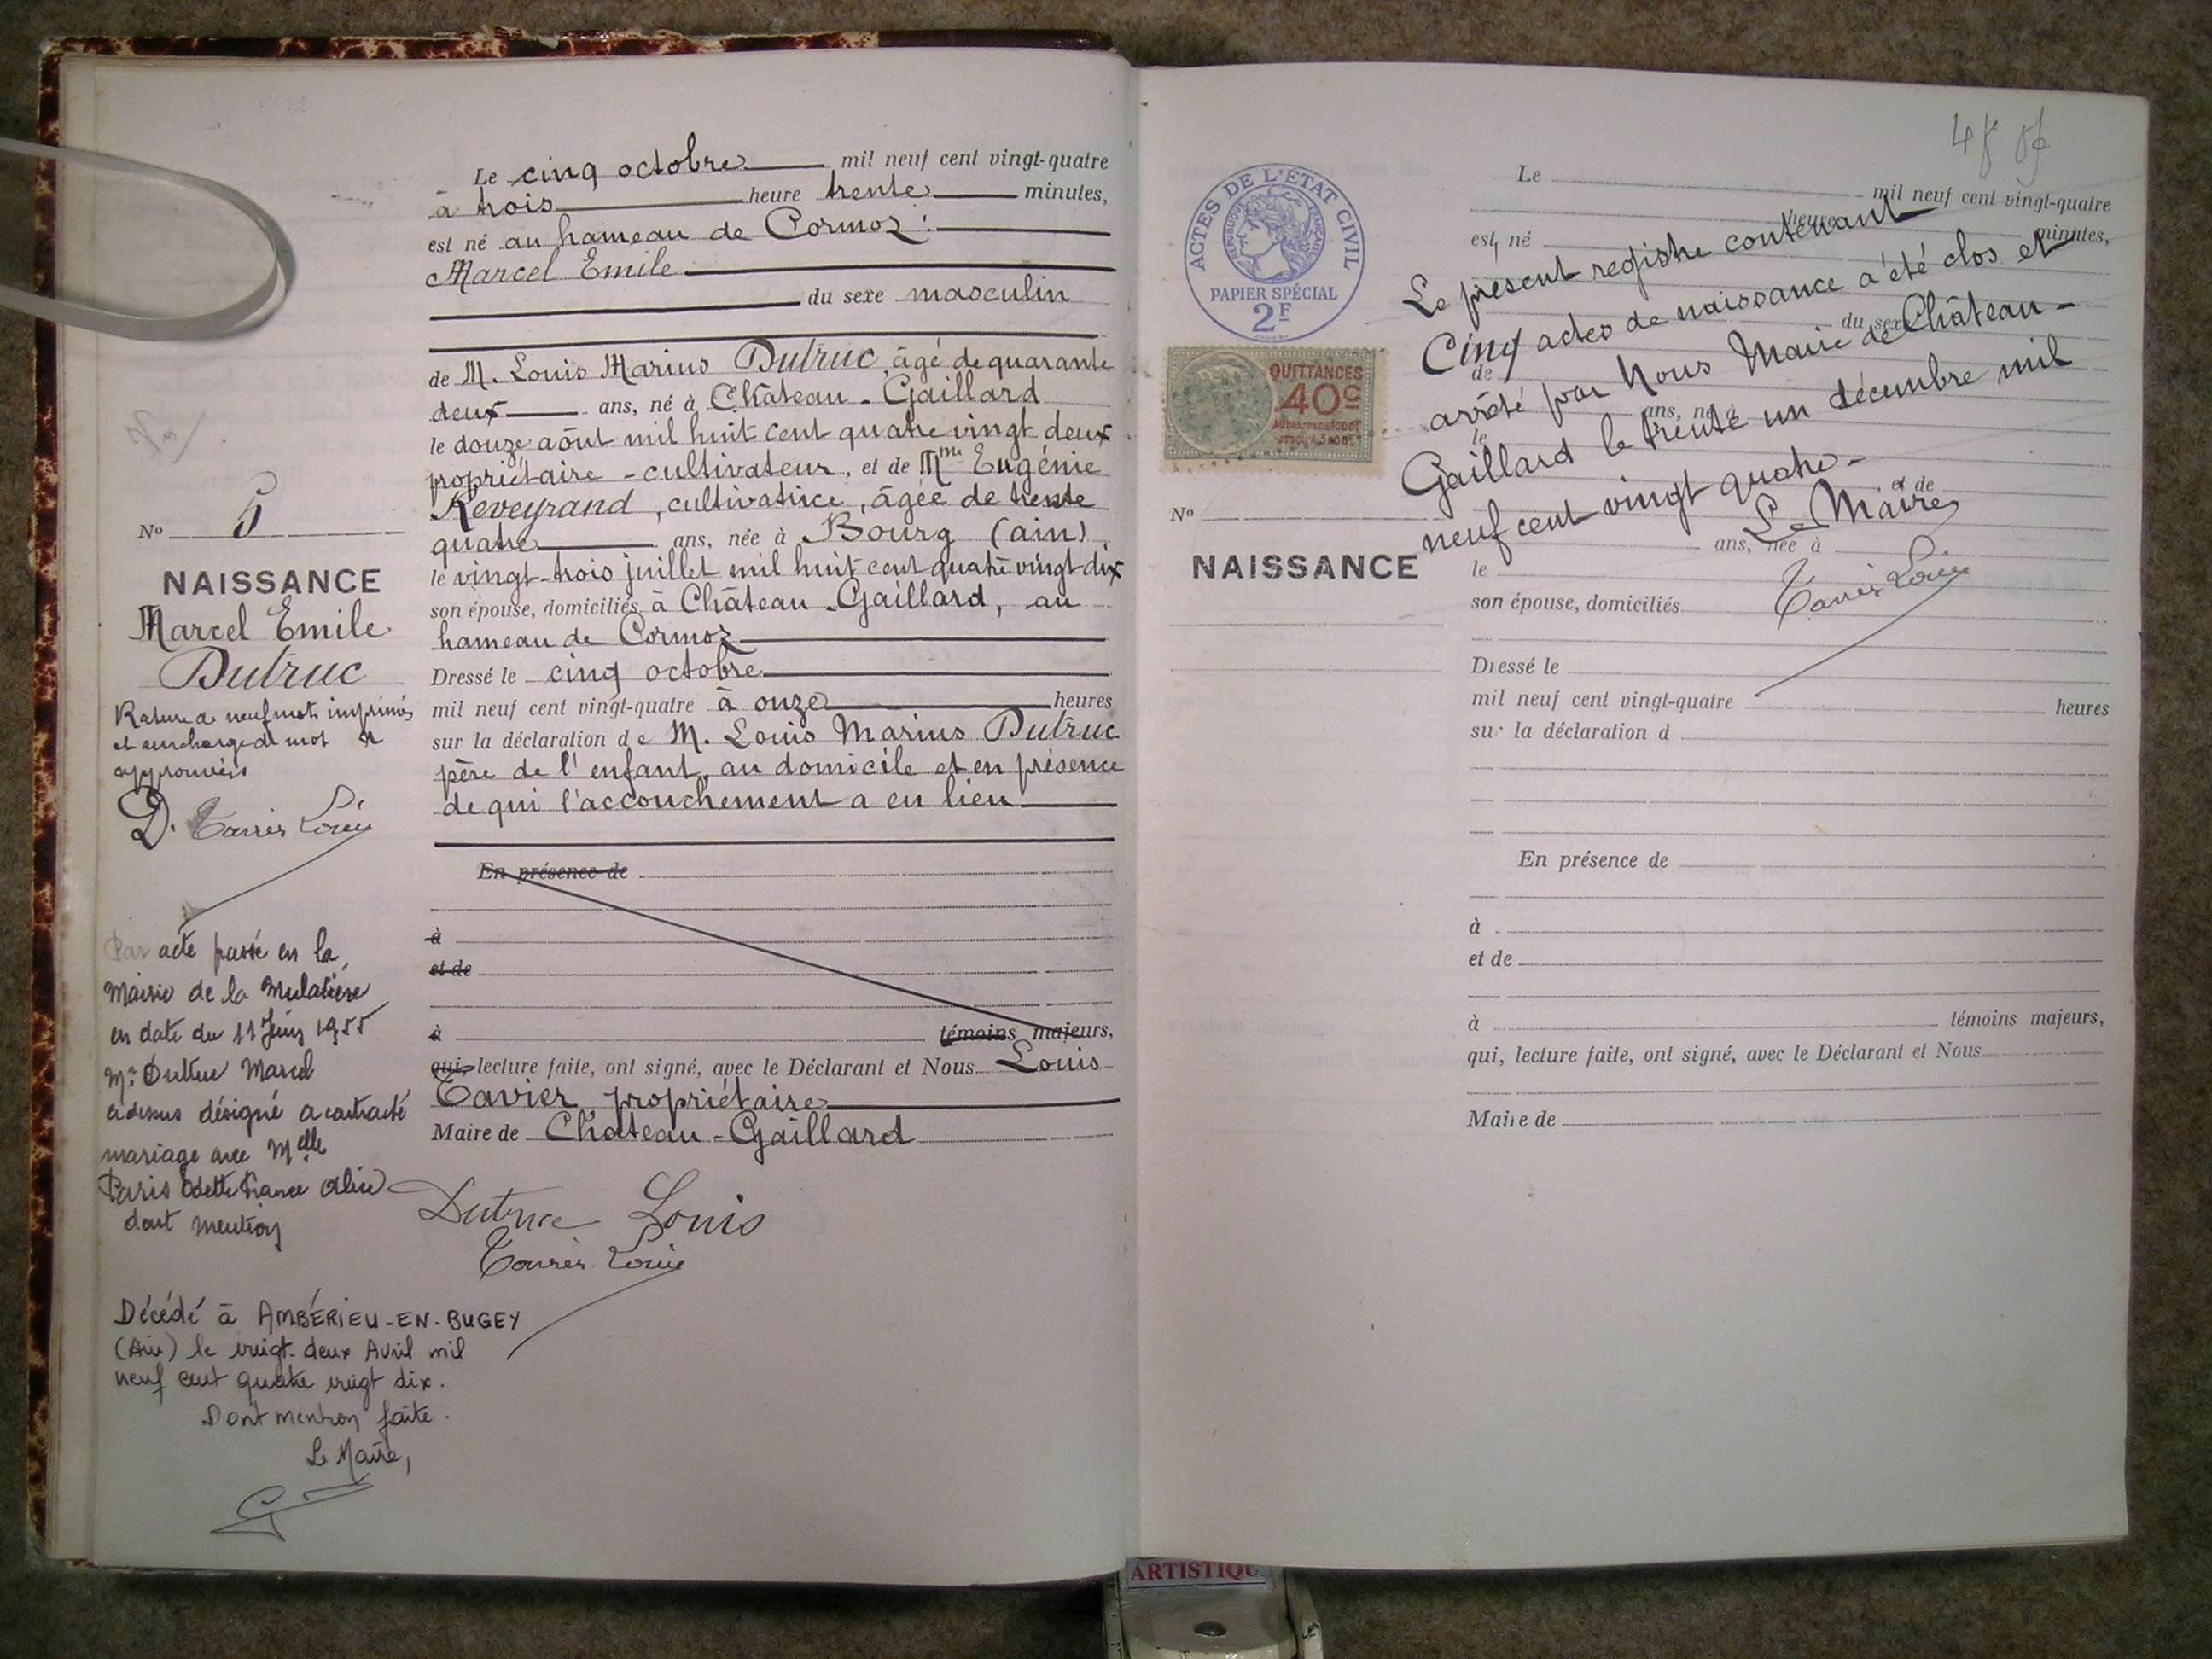 Le cinq octobre mil neuf cent vingt-quatre
à trois heure trente minutes,
est né au hameau de Cormoz :
Marcel Emile
du sexe masculin
de M. Louis Marius Dutruc, âgé de quarante
deux ans, né à Château-Gaillard
le douze août mil huit cent quatre vingt deux
propriétaire-cultivateur, et de Mme Eugénie
Reveyrand, cultivatrice, âgée de trente
quatre ans, née à Bourg (ain)
le vingt-trois juillet mil huit cent quatre vingt dix
son épouse, domiciliés à Château-Gaillard, au
hameau de Cormoz
Dressé le cinq octobre
mil neuf cent vingt-quatre à onze heures
sur la déclaration de M. Louis Marius Dutruc
père de l'enfant, au domicile et en présence
de qui l'accouchement a eu lieu
En présence de
à
et de
à témoins majeurs,
qui, lecture faite, ont signé, avec le Déclarant et Nous Louis
Tavier, propriétaire
Maire de Château-Gaillard
Dutruc Louis
No 5
NAISSANCE
Marcel Emile
Dutruc
Rature de neuf mots imprimés
et surcharge du mot
approuvés
D.
Par acte passé en la
Mairie de la Mulatière
en date du 11 Juin 1955
Mr Dutruc Marcel
ci dessus désigné a contracté
mariage avec Melle
Paris Odette France Alice
dont mention
Décédé à AMBÉRIEU-EN-BUGEY
(Ain) le vingt-deux Avril mil
neuf cent quatre vingt dix.
Dont mention faite.
Le Maire,
ACTES DE L'ÉTAT CIVIL
RÉPUBLIQUE FRANÇAISE
PAPIER SPÉCIAL
2F
QUITTANCES
40c
No
NAISSANCE
Le
mil neuf cent vingt-quatre
heure minutes,
est né
du sexe
de
ans, né à
le
et de
ans, née à
le
son épouse, domiciliés
Dressé le
mil neuf cent vingt-quatre heures
sur la déclaration d
En présence de
à
et de
à témoins majeurs,
qui, lecture faite, ont signé, avec le Déclarant et Nous
Maire de
Le présent registre contenant
Cinq actes de naissance a été clos et
arrêté par Nous Maire de Château-
Gaillard le trente un décembre mil
neuf cent vingt quatre-
Le Maire
ARTISTIQU